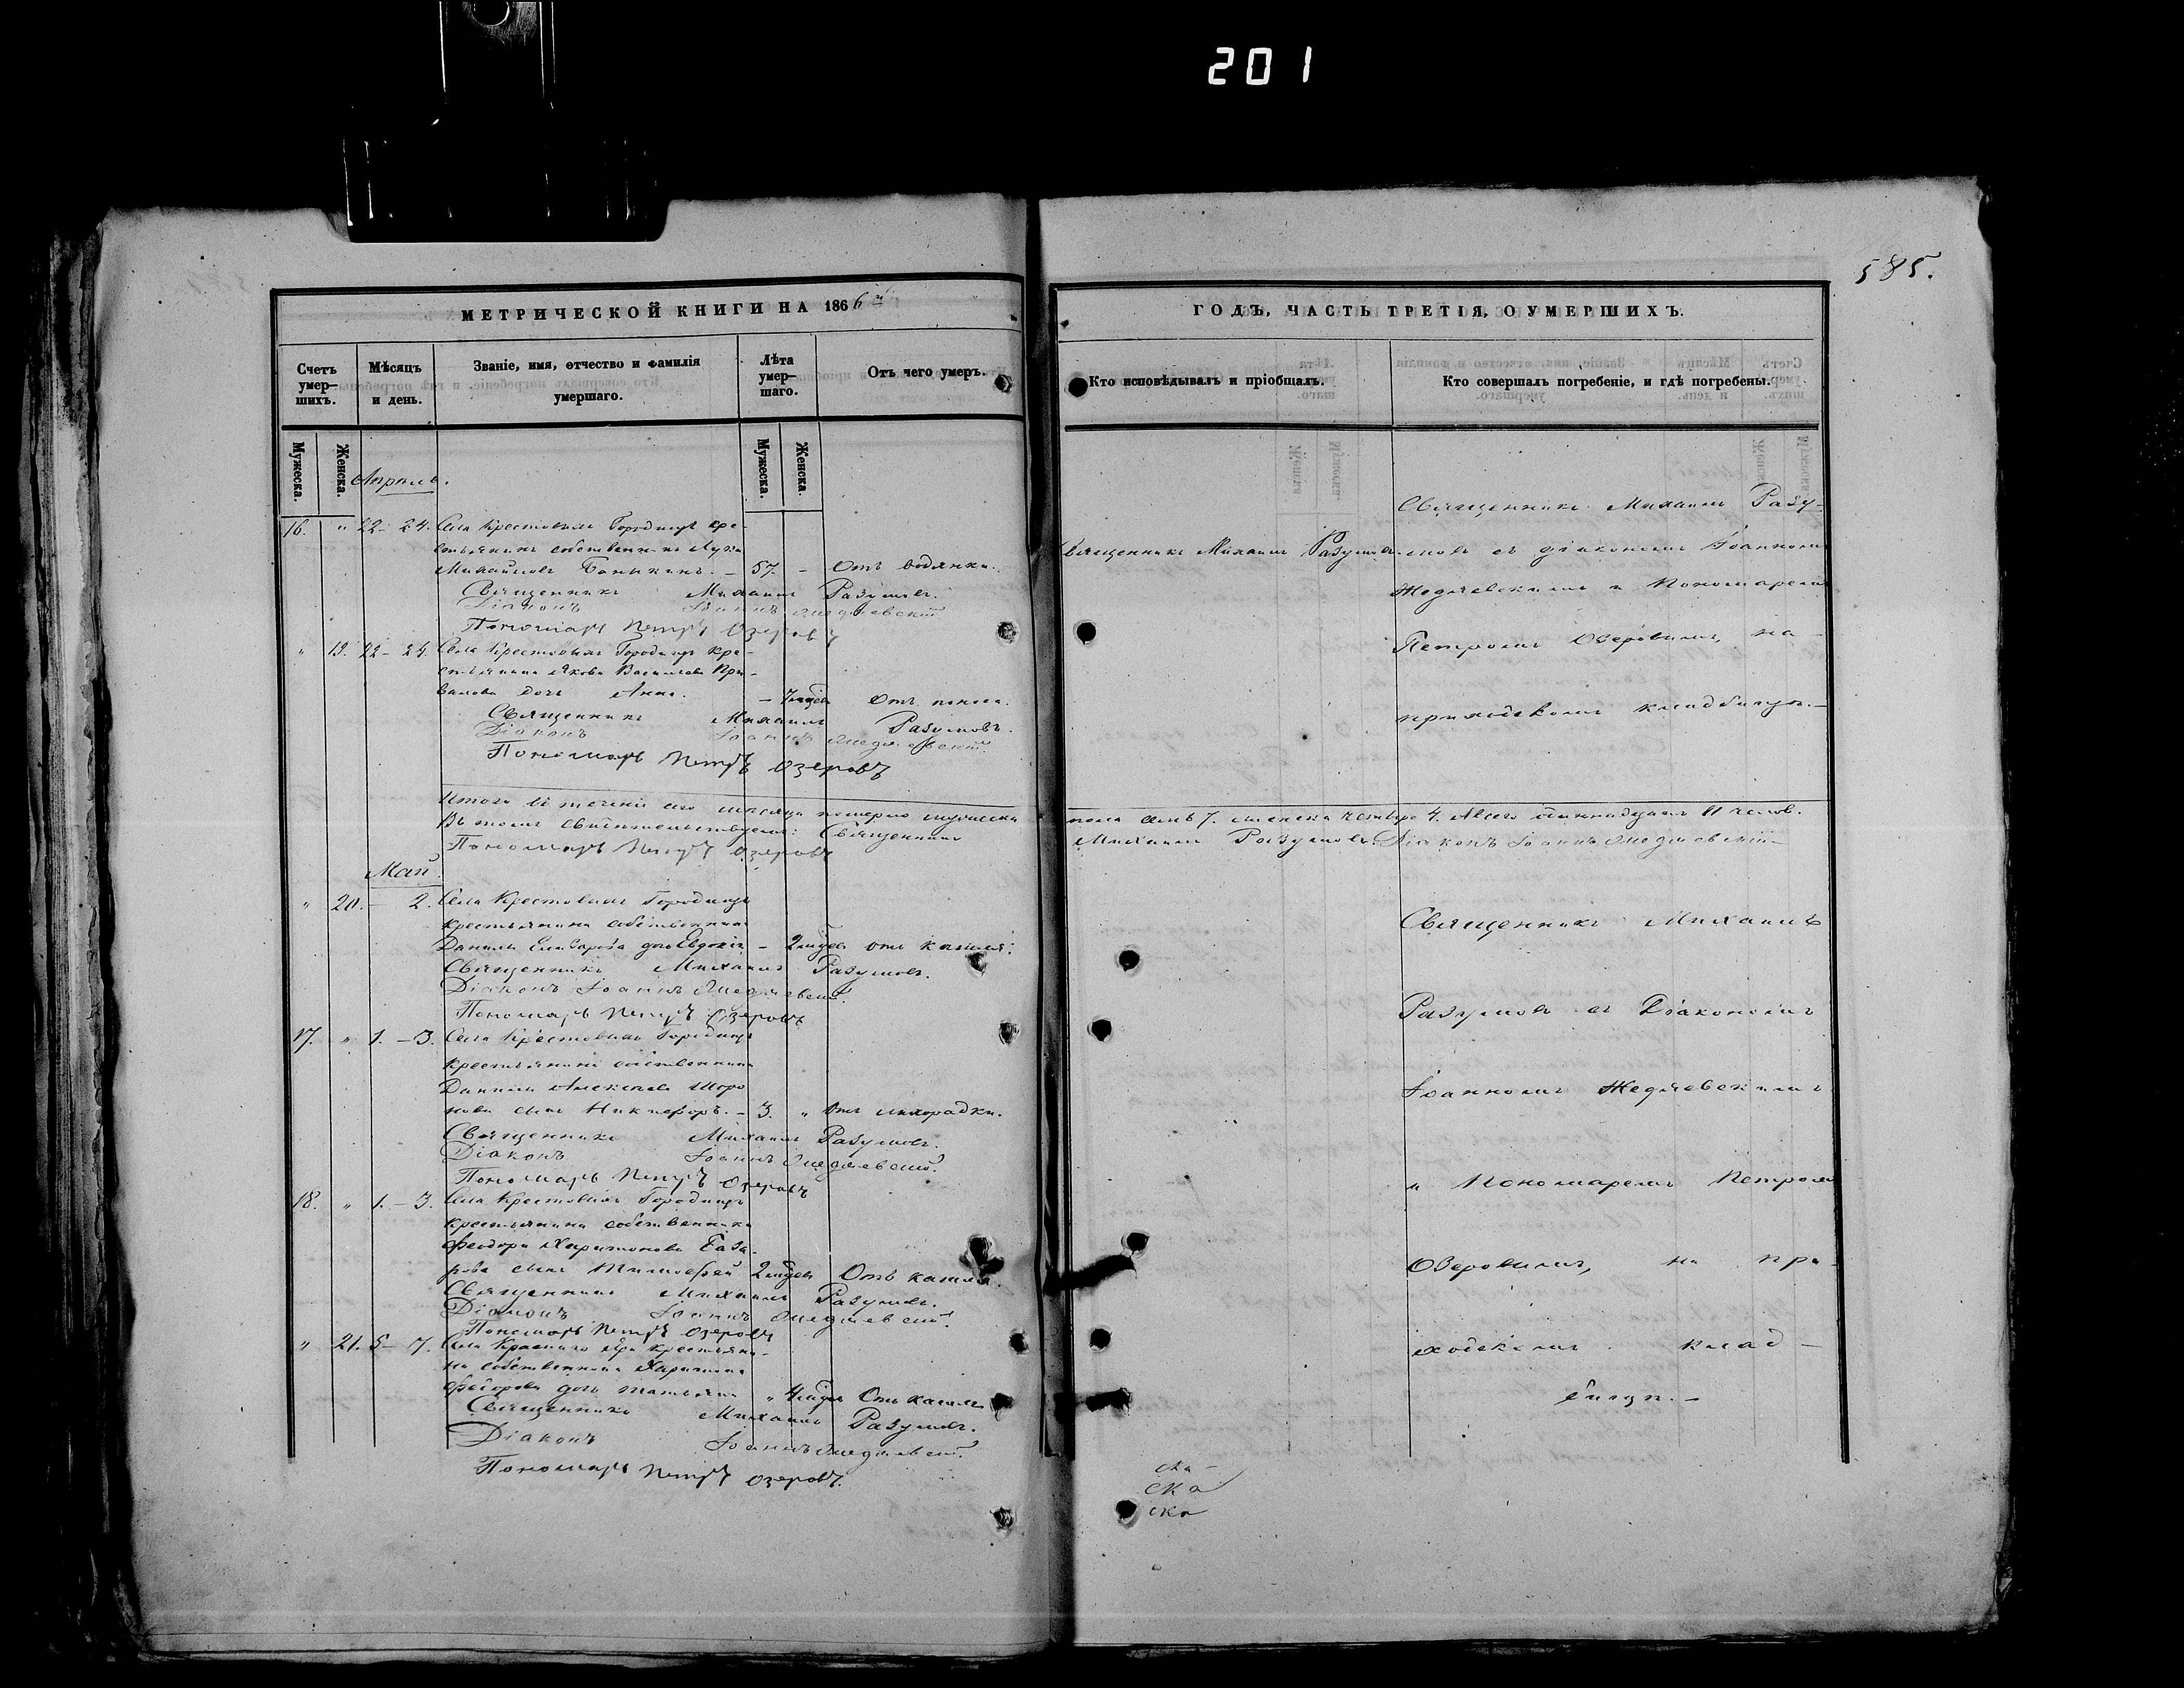 201
585.
МЕТРИЧЕСКОЙ КНИГИ НА 1866й
Счетъ умер-шихъ.
Мѣсяцъ и день.
Званіе, имя, отчество и фамилія умершаго.
Лѣта умер-шаго.
Отъ чего умеръ.
Мужеска.
Женска.
Мужеска.
Женска.
Апрѣль.
16. " 22- 24. Села Крестовыхъ Городищъ кре-
стьянинъ собственникъ Лука
Михайловъ Банькинъ. - 57. - Отъ водянки.
Священникъ Михаилъ Разумовъ.
Діаконъ Іоаннъ
Пономарь Петръ Озеровъ
" 19. 22- 24. Села Крестовыхъ Городищъ кре-
стьянина Якова Васильева При-
валова дочь Анна. - Отъ поноса.
Священникъ Михаилъ Разумовъ.
Діаконъ Іоаннъ
Пономарь Петръ Озеровъ
Итого въ теченіи сего мѣсяца померло мужеска
Въ томъ свидѣтельствуемъ: Священникъ
Пономарь Петръ Озеровъ
Май.
" 20. - 2. Села Крестовыхъ Городищъ
крестьянина собственника
Данилы Елизарова дочь Евдокія - 2 отъ кашля.
Священникъ Михаилъ Разумовъ.
Діаконъ Іоаннъ
Пономарь Петръ Озеровъ
17. " 1. - 3. Села Крестовыхъ Городищъ
крестьянина собственника
Данилы Алексѣева
сынъ Никифоръ. - 3. " Отъ лихорадки.
Священникъ Михаилъ Разумовъ.
Діаконъ Іоаннъ
Пономарь Петръ Озеровъ
18. " 1. - 3. Села Крестовыхъ Городищъ
крестьянина собственника
Феодора Харитонова База-
рова сынъ Тимофей 2 Отъ кашля.
Священникъ Михаилъ Разумовъ.
Діаконъ Іоаннъ
Пономарь Петръ Озеровъ
" 21. 5 - 7. Села Краснаго Яра крестьяни-
на собственника Харитона
Федорова дочь Татьяна " 4 Отъ кашля
Священникъ Михаилъ Разумовъ.
Діаконъ Іоаннъ
Пономарь Петръ Озеровъ.
ГОДЪ, ЧАСТЬ ТРЕТІЯ, О УМЕРШИХЪ.
Кто исповѣдывалъ и пріобщалъ.
Кто совершалъ погребеніе, и гдѣ погребены.
Священникъ Михаилъ Разумовъ
Священникъ Михаилъ Разу-
мовъ съ діакономъ Іоанномъ
и Пономаремъ
Петромъ Озеровымъ, на
приходскомъ кладбищѣ. -
пола семь 7. женска четыре 4. Всего одиннадцать 11 челов.
Михаилъ Разумовъ. Діаконъ Іоаннъ
Священникъ Михаилъ
Разумовъ съ Діакономъ
Іоанномъ
и Пономаремъ Петромъ
Озеровымъ, на при-
ходскомъ клад-
бищѣ. -
ска
ска
ска